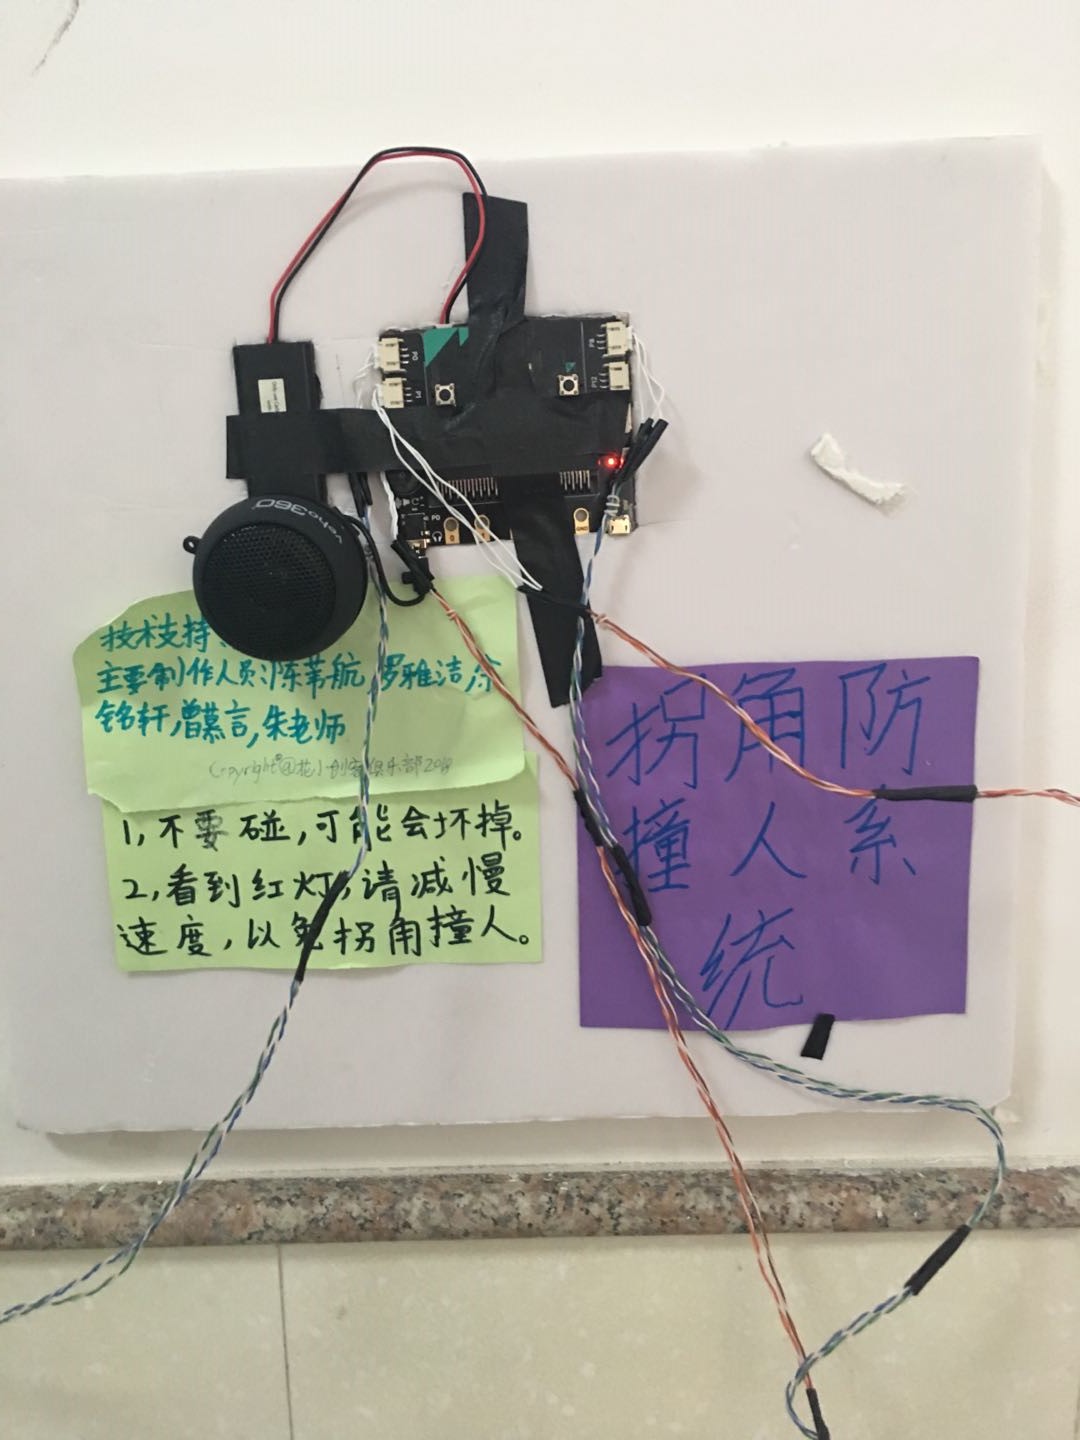 veho360°
P0
P1
P8
P12
P0
0
GND
技术支持:
主要制作人员:陈苇航,罗雅洁,徐
铭轩,曾慕言,朱老师
Copyright@花小创客俱乐部2018
1,不要碰,可能会坏掉。
2,看到红灯,请减慢
速度,以免拐角撞人。
拐角防
撞人系
统